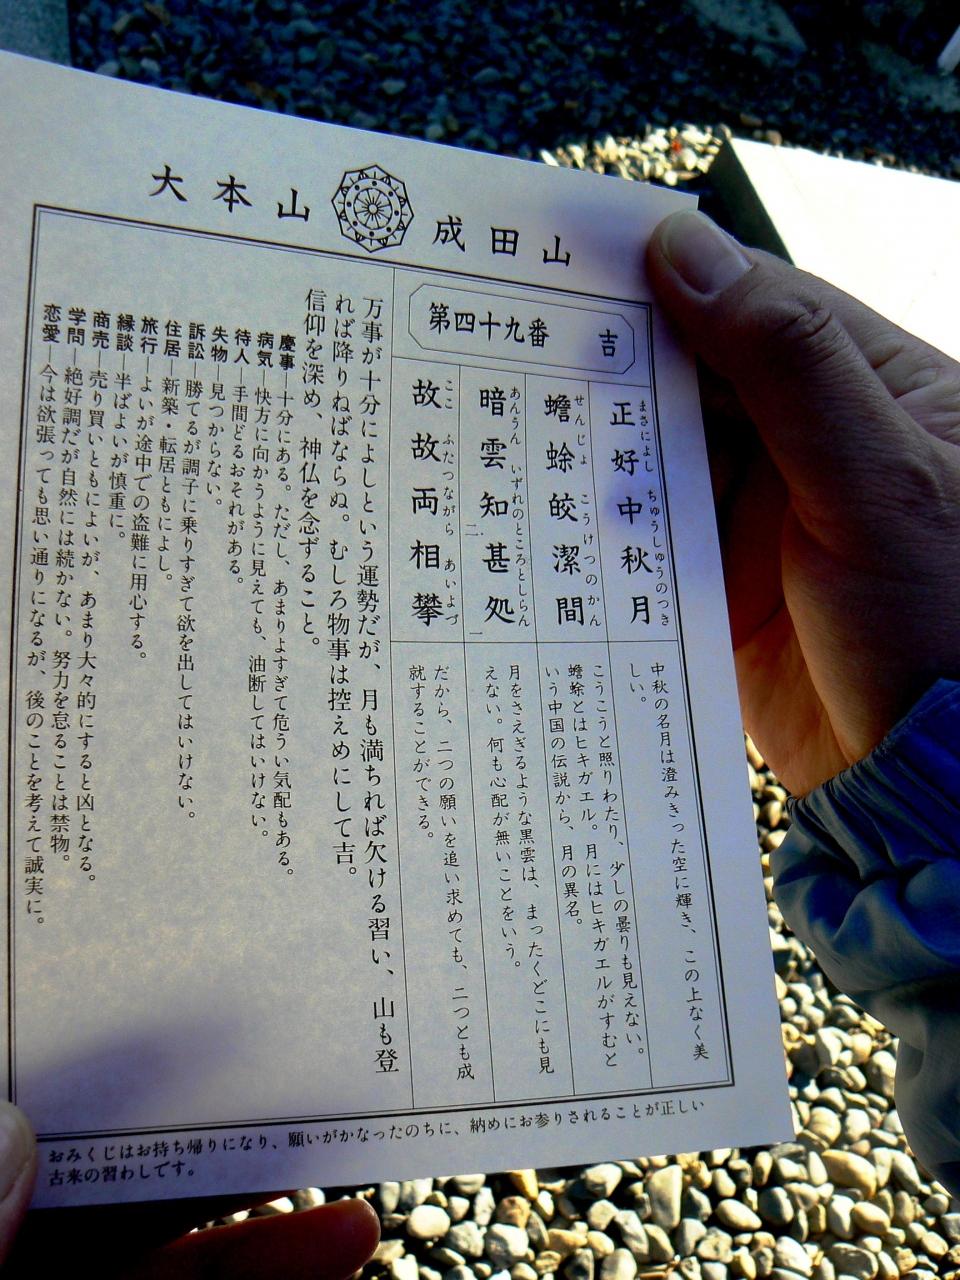 大本山 成田山
第四十九番 吉
正好中秋月
まさによし ちゅうしゅうのつき
中秋の名月は澄みきった空に輝き、この上なく美
しい。
蟾蜍皎潔間
せんじょ こうけつのかん
こうこうと照りわたり、少しの曇りも見えない。
蟾蜍とはヒキガエル。月にはヒキガエルがすむと
いう中国の伝説から、月の異名。
暗雲知甚処
二 一
あんうん いずれのところとしらん
月をさえぎるような黒雲は、まったくどこにも見
えない。何も心配が無いことをいう。
故故両相攀
ここ ふたつながら あいよづ
だから、二つの願いを追い求めても、二つとも成
就することができる。
万事が十分によしという運勢だが、月も満ちれば欠ける習い、山も登
れば降りねばならぬ。むしろ物事は控えめにして吉。
信仰を深め、神仏を念ずること。
慶事―十分にある。ただし、あまりよすぎて危うい気配もある。
病気 快方に向かうように見えても、油断してはいけない。
待人―手間どるおそれがある。
失物―見つからない。
訴訟―勝てるが調子に乗りすぎて欲を出してはいけない。
住居―新築・転居ともによし。
旅行―よいが途中での盗難に用心する。
縁談 半ばよいが慎重に。
商売―売り買いともによいが、あまり大々的にすると凶となる。
学問―絶好調だが自然には続かない。努力を怠ることは禁物。
恋愛―今は欲張っても思い通りになるが、後のことを考えて誠実に。
おみくじはお持ち帰りになり、願いがかなったのちに、納めにお参りされることが正しい
古来の習わしです。